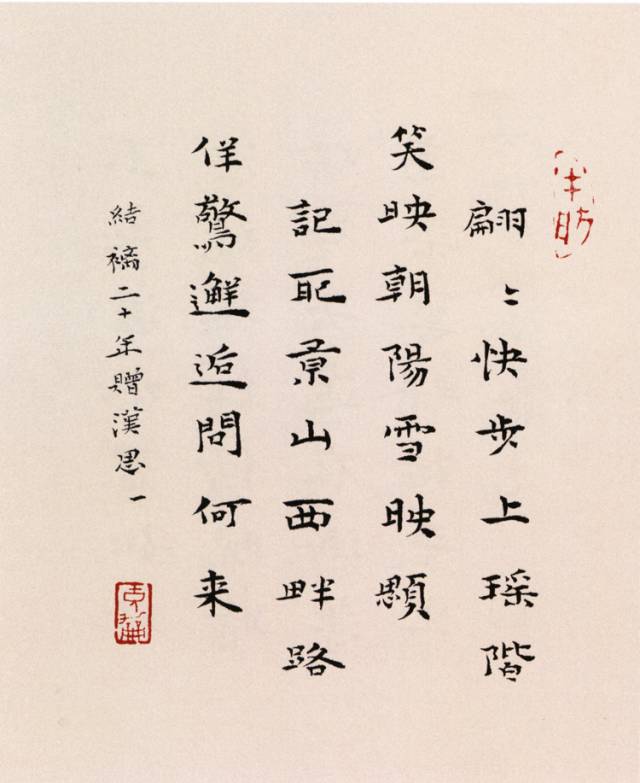 翩〻快步上瑤階
笑映朝陽雪映顋
記取景山西畔路
佯驚邂逅問何来
結褵二十年贈漢思一